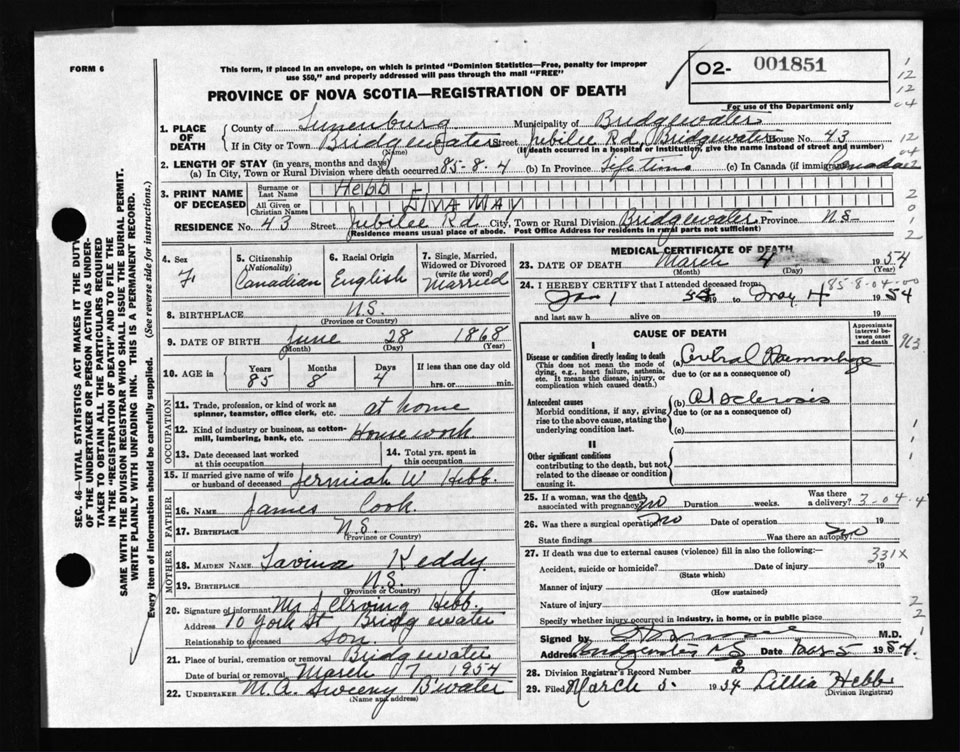 FORM 6
This form, if placed in an envelope, on which is printed "Dominion Statistics—Free, penalty for improper
use $50," and properly addressed will pass through the mail "FREE"
PROVINCE OF NOVA SCOTIA—REGISTRATION OF DEATH
02- 001851
For use of the Department only
1. PLACE OF DEATH { County of Lunenburg Municipality of Bridgewater
If in City or Town Bridgewater (Name) Street Jubilee Rd, Bridgewater House No. 43
(If death occurred in a hospital or institution, give the name instead of street and number)
2. LENGTH OF STAY (in years, months and days)
(a) In City, Town or Rural Division where death occurred 85-8-4 (b) In Province Life time (c) In Canada (if immigrant) Canada
3. PRINT NAME OF DECEASED { Surname or Last Name Hebb -
All Given or Christian Names MAY
RESIDENCE No. 43 Street Jubilee Rd City, Town or Rural Division Bridgewater Province N.S-
(Residence means usual place of abode. Post Office Address for residents in rural parts not sufficient)
4. Sex F
5. Citizenship (Nationality) Canadian
6. Racial Origin English
7. Single, Married, Widowed or Divorced (write the word) Married
8. BIRTHPLACE N.S. (Province or Country)
9. DATE OF BIRTH June (Month) 28 (Day) 1868 (Year)
10. AGE in Years 85 Months 8 Days 4 If less than one day old hrs. or min.
OCCUPATION
11. Trade, profession, or kind of work as spinner, teamster, office clerk, etc. at home
12. Kind of industry or business, as cotton-mill, lumbering, bank, etc. House work
13. Date deceased last worked at this occupation
14. Total yrs. spent in this occupation
15. If married give name of wife or husband of deceased Jermiah W. Hebb.
FATHER
16. NAME James Cook.
17. BIRTHPLACE N.S. (Province or Country)
MOTHER
18. MAIDEN NAME Lavina Keddy
19. BIRTHPLACE N.S. (Province or Country)
20. Signature of informant Irving Hebb.
Address 70 York St Bridgewater
Relationship to deceased Son.
21. Place of burial, cremation or removal Bridgewater
Date of burial or removal March 7 1954
22. UNDERTAKER M.A. Sweeny B'water
(Name and address)
MEDICAL CERTIFICATE OF DEATH
23. DATE OF DEATH March (Month) 4 (Day) 1954 (Year)
85-8-04-00
24. I HEREBY CERTIFY that I attended deceased from:
Jan 1 to 4 1954
and last saw h alive on 19
CAUSE OF DEATH
Approximate interval between onset and death
I
Disease or condition directly leading to death
(This does not mean the mode of dying, e.g., heart failure, asthenia, etc. It means the disease, injury, or complication which caused death.)
(a) Cerebral Haemorrhage
due to (or as a consequence of)
Antecedent causes
Morbid conditions, if any, giving rise to the above cause, stating the underlying condition last.
(b)
due to (or as a consequence of)
(c)
II
Other significant conditions
contributing to the death, but not related to the disease or condition causing it.
25. If a woman, was the death associated with pregnancy? no Duration weeks. Was there a delivery? 3-04-4
26. Was there a surgical operation? no Date of operation 19
State findings Was there an autopsy? no
27. If death was due to external causes (violence) fill in also the following:— 331X
Accident, suicide or homicide? (State which) Date of injury 19
Manner of injury (How sustained)
Nature of injury
Specify whether injury occurred in industry, in home, or in public place
Signed by M.D.
Address Bridgewater NS Date 5 1954.
28. Division Registrar's Record Number
29. Filed March 5. 1954 Lillia Hebb
(Division Registrar)
SEC. 46—VITAL STATISTICS ACT MAKES IT THE DUTY
OF THE UNDERTAKER OR PERSON ACTING AS UNDER-
TAKER TO OBTAIN ALL THE PARTICULARS REQUIRED
IN THE "REGISTRATION OF DEATH" AND TO FILE THE
SAME WITH THE DIVISION REGISTRAR WHO SHALL ISSUE THE BURIAL PERMIT.
WRITE PLAINLY WITH UNFADING INK. THIS IS A PERMANENT RECORD.
Every item of information should be carefully supplied. (See reverse side for instructions.)